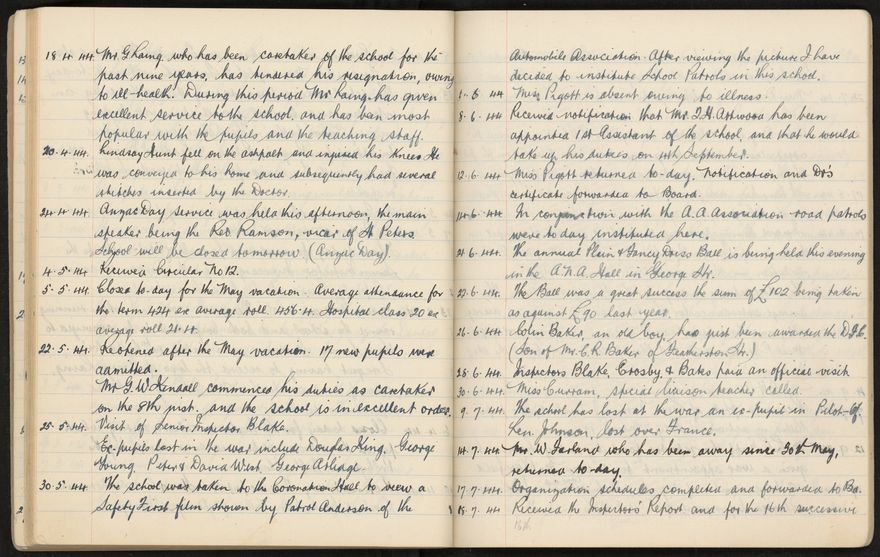 18.4.44. Mr G Laing, who has been caretaker of the school for the
past nine years, has tendered his resignation, owing
to ill-health. During this period Mr Laing has given
excellent service to the school, and has been most
popular with the pupils and the teaching staff.
20.4.44. Lindsay Hunt fell on the ashpalt and injured his knee. He
was conveyed to his home and subsequently had several
stitches inserted by the Doctor.
24.4.44. Anzac Day service was held this afternoon, the main
speaker being the Rev Ramson, vicar of St Peters.
School will be closed tomorrow (Anzac Day)
4.5.44. Received Circular No 12.
5.5.44. Closed to-day for the May vacation. Average attendance for
the term 424 ex average roll. 456.4. Hospital class 20 ex
average roll 21.4.
22.5.44. Reopened after the May vacation. 17 new pupils were
admitted.
Mr G.W. Kendall commenced his duties as caretaker
on the 8th inst. and the school is in excellent order.
25.5.44. Visit of Senior Inspector Blake.
Ex-pupils lost in the war include Douglas King, George
Young, Peter & David West, George
30.5.44. The school was taken to the Coronation Hall to view a
Safety First film shown by Patrol Anderson of the
Automobile Association. After viewing the picture I have
decided to institute School Patrols in this school.
1.6.44 Miss Pigott is absent owing to illness.
8.6.44 Received notification that Mr. J.H. Attwood has been
appointed 1st Assistant of the school, and that he would
take up his duties on 4th September.
12.6.44 Miss Pigott returned to-day. Notification and Dr's
certificate forwarded to Board.
14.6.44 In conjunction with the A.A. Association road patrols
were to day instituted here.
21.6.44. The annual Plain & Fancy Dress Ball is being held this evening
in the A.N.A. Hall in George Str.
22.6.44. The Ball was a great success the sum of £102 being taken
as against £90 last year.
26.6.44 Colin Baker, an old boy, had just been awarded the D.F.C.
(Son of Mr. C.R. Baker of Featherston Str.)
28.6.44 Inspectors Blake, Crosby & Bates paid an official visit
30.6.44 Miss Curram, special liaison teacher called.
9.7.44. The school has lost at the war an ex-pupil in Pilot-Of.
Len Johnson, lost over France.
14.7.44. Mr. W. Garland who has been away since 30th May,
returned to-day.
17.7.44. Organization schedules completed and forwarded to Bd.
18.7.44 Received the Inspectors' Report and for the 16th successive
16th